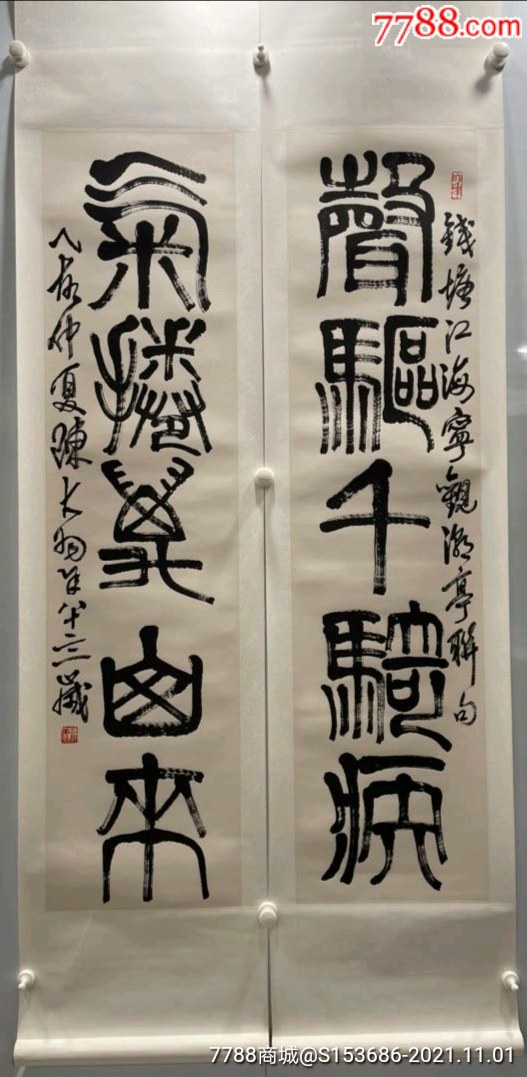 7788.com
錢塘江海寧觀潮亭聯句
聲驅千騎疾
氣捲萬山來
乙亥仲夏陳大羽年八十三歲
7788商城@S153686-2021.11.01